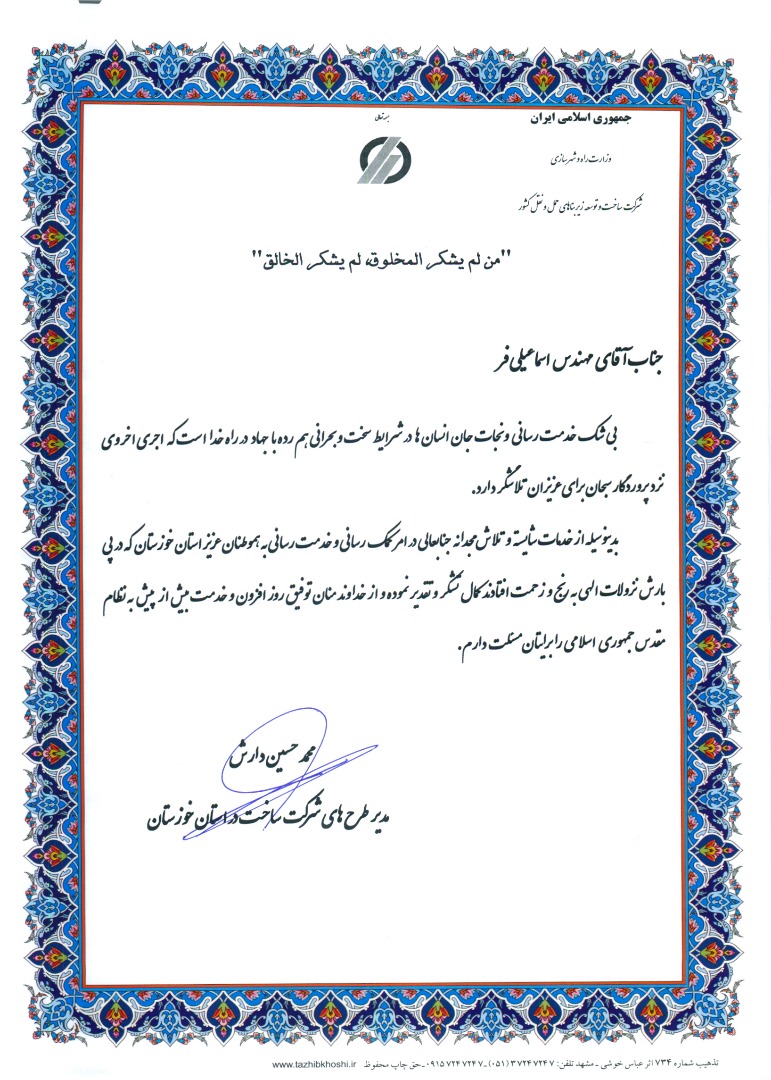 بسمه تعالی
جمهوری اسلامی ایران
وزارت راه و شهرسازی
شرکت ساخت و توسعه زیربناهای حمل و نقل کشور
"من لم یشکر المخلوق، لم یشکر الخالق"
جناب آقای مهندس اسماعیلی فر
بی شک خدمت رسانی و نجات جان انسان ها در شرایط سخت و بحرانی هم رده با جهاد در راه خدا است که اجری اخروی
نزد پروردگار سبحان برای عزیزان تلاشگر دارد.
بدینوسیله از خدمات شایسته و تلاش مجدانه جنابعالی در امر کمک رسانی و خدمت رسانی به هموطنان عزیز استان خوزستان که در پی
بارش نزولات الهی به رنج و زحمت افتادند کمال تشکر و تقدیر نموده و از خداوند منان توفیق روز افزون و خدمت بیش از پیش به نظام
مقدس جمهوری اسلامی را برایتان مسئلت دارم.
محمد حسین دارش
مدیر طرح های شرکت ساخت در استان خوزستان
تذهیب شماره ۷۳۴ اثر عباس خوشی - مشهد تلفن: ۳۷۲۴۷۲۴۷ (۰۵۱) - ۰۹۱۵۷۲۴۷۲۴۷ - حق چاپ محفوظ www.tazhibkhoshi.ir